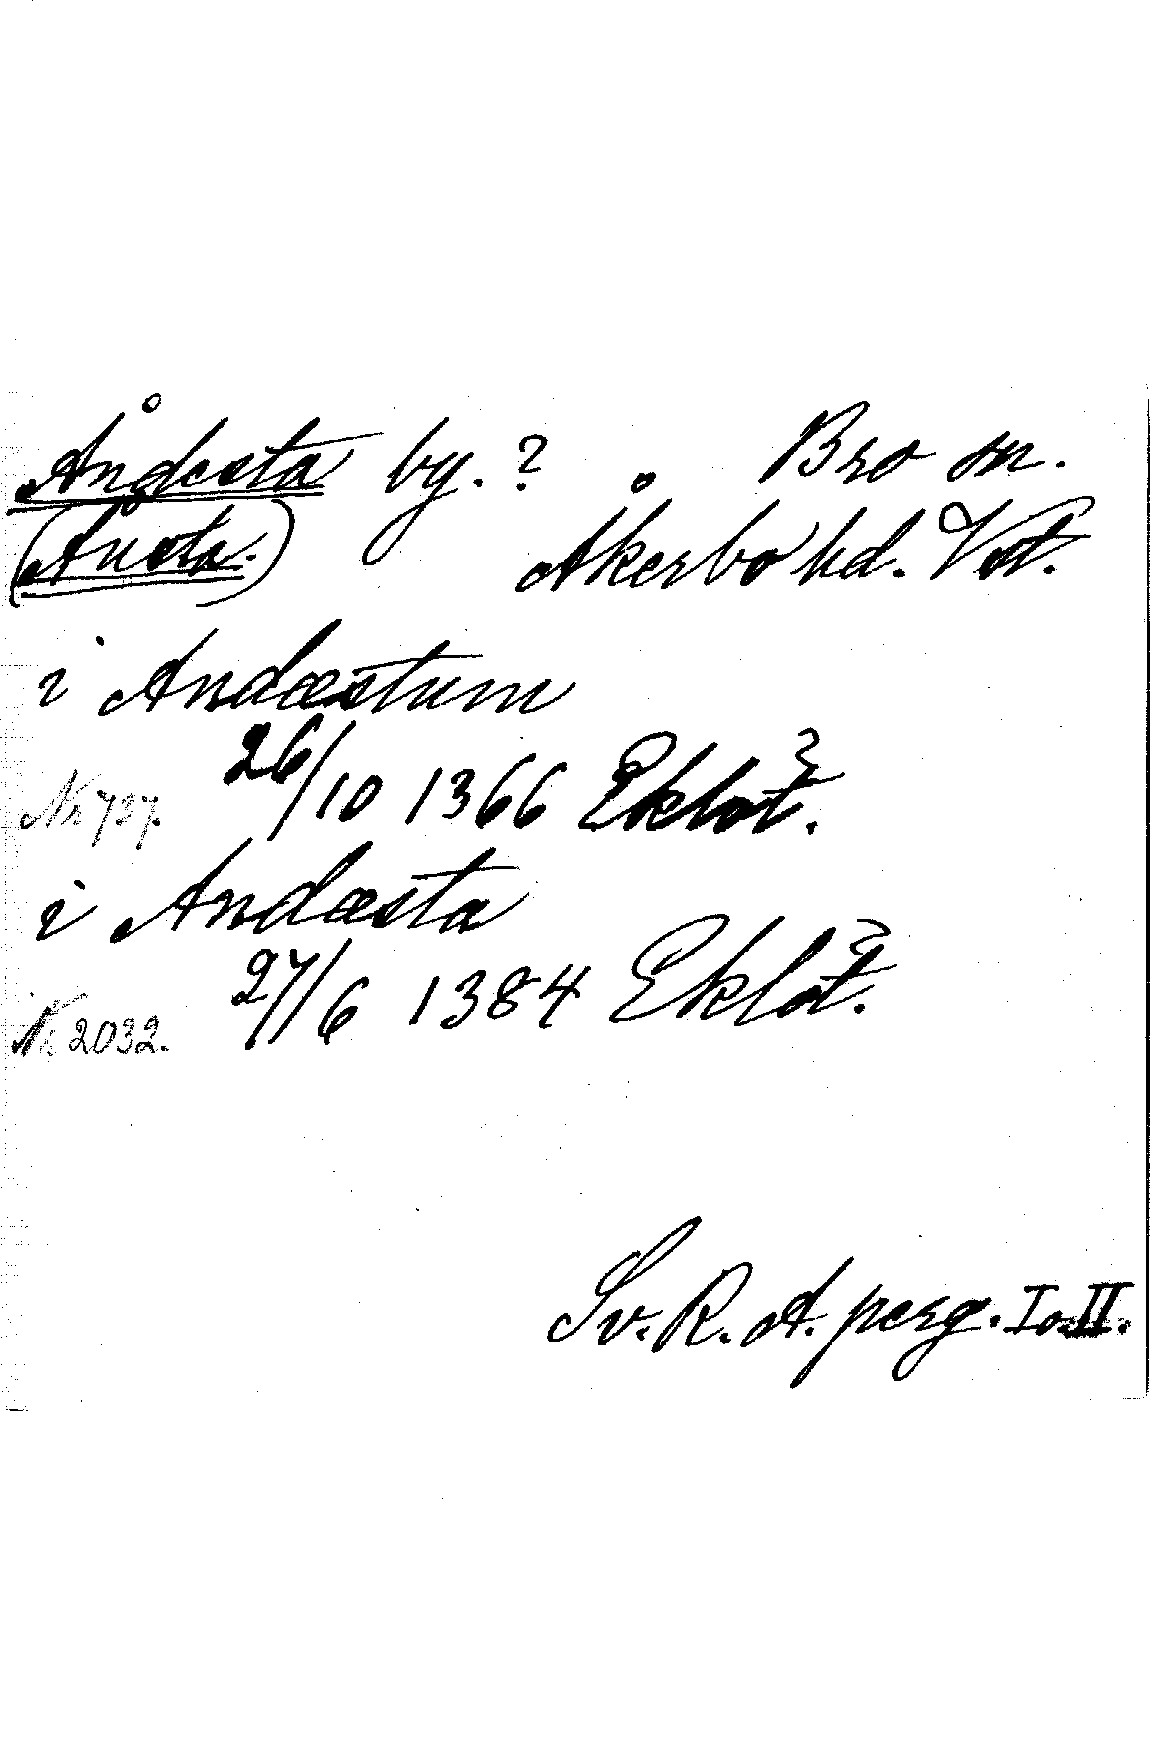 Åndesta by. ? Bro sn.
(Åusta.) Åkerbo hd. Vstl.
i Andæstum
26/10 1366 Eklöt?.
Nr 737.
i Andæsta
27/6 1384 Eklöt?.
Nr 2032.
Sv. R. A. perg. I o. II.